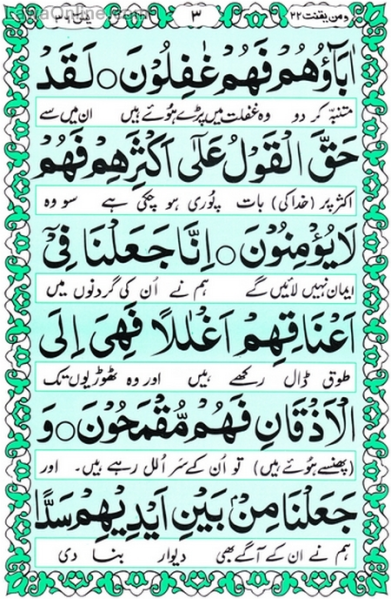 ومن یقنت ۲۲ ۳ یٰسٓ ۳۶
اٰبَآؤُهُمْ فَهُمْ غٰفِلُوْنَ○ لَقَدْ
متنبہ کر دو وہ غفلت میں پڑے ہوئے ہیں ان میں سے
حَقَّ الْقَوْلُ عَلٰٓى اَكْثَرِهِمْ فَهُمْ
اکثر پر (خدا کی) بات پوری ہو چکی ہے سو وہ
لَا يُؤْمِنُوْنَ○ اِنَّا جَعَلْنَا فِىْٓ
ایمان نہیں لائیں گے ہم نے ان کی گردنوں میں
اَعْنَاقِهِمْ اَغْلٰلًا فَهِىَ اِلَى
طوق ڈال رکھے ہیں اور وہ ٹھوڑیوں تک
الْاَذْقَانِ فَهُمْ مُّقْمَحُوْنَ○ وَ
(پھنسے ہوئے ہیں) تو ان کے سر الل رہے ہیں۔ اور
جَعَلْنَا مِنْۢ بَيْنِ اَيْدِيْهِمْ سَدًّا
ہم نے ان کے آگے بھی دیوار بنا دی